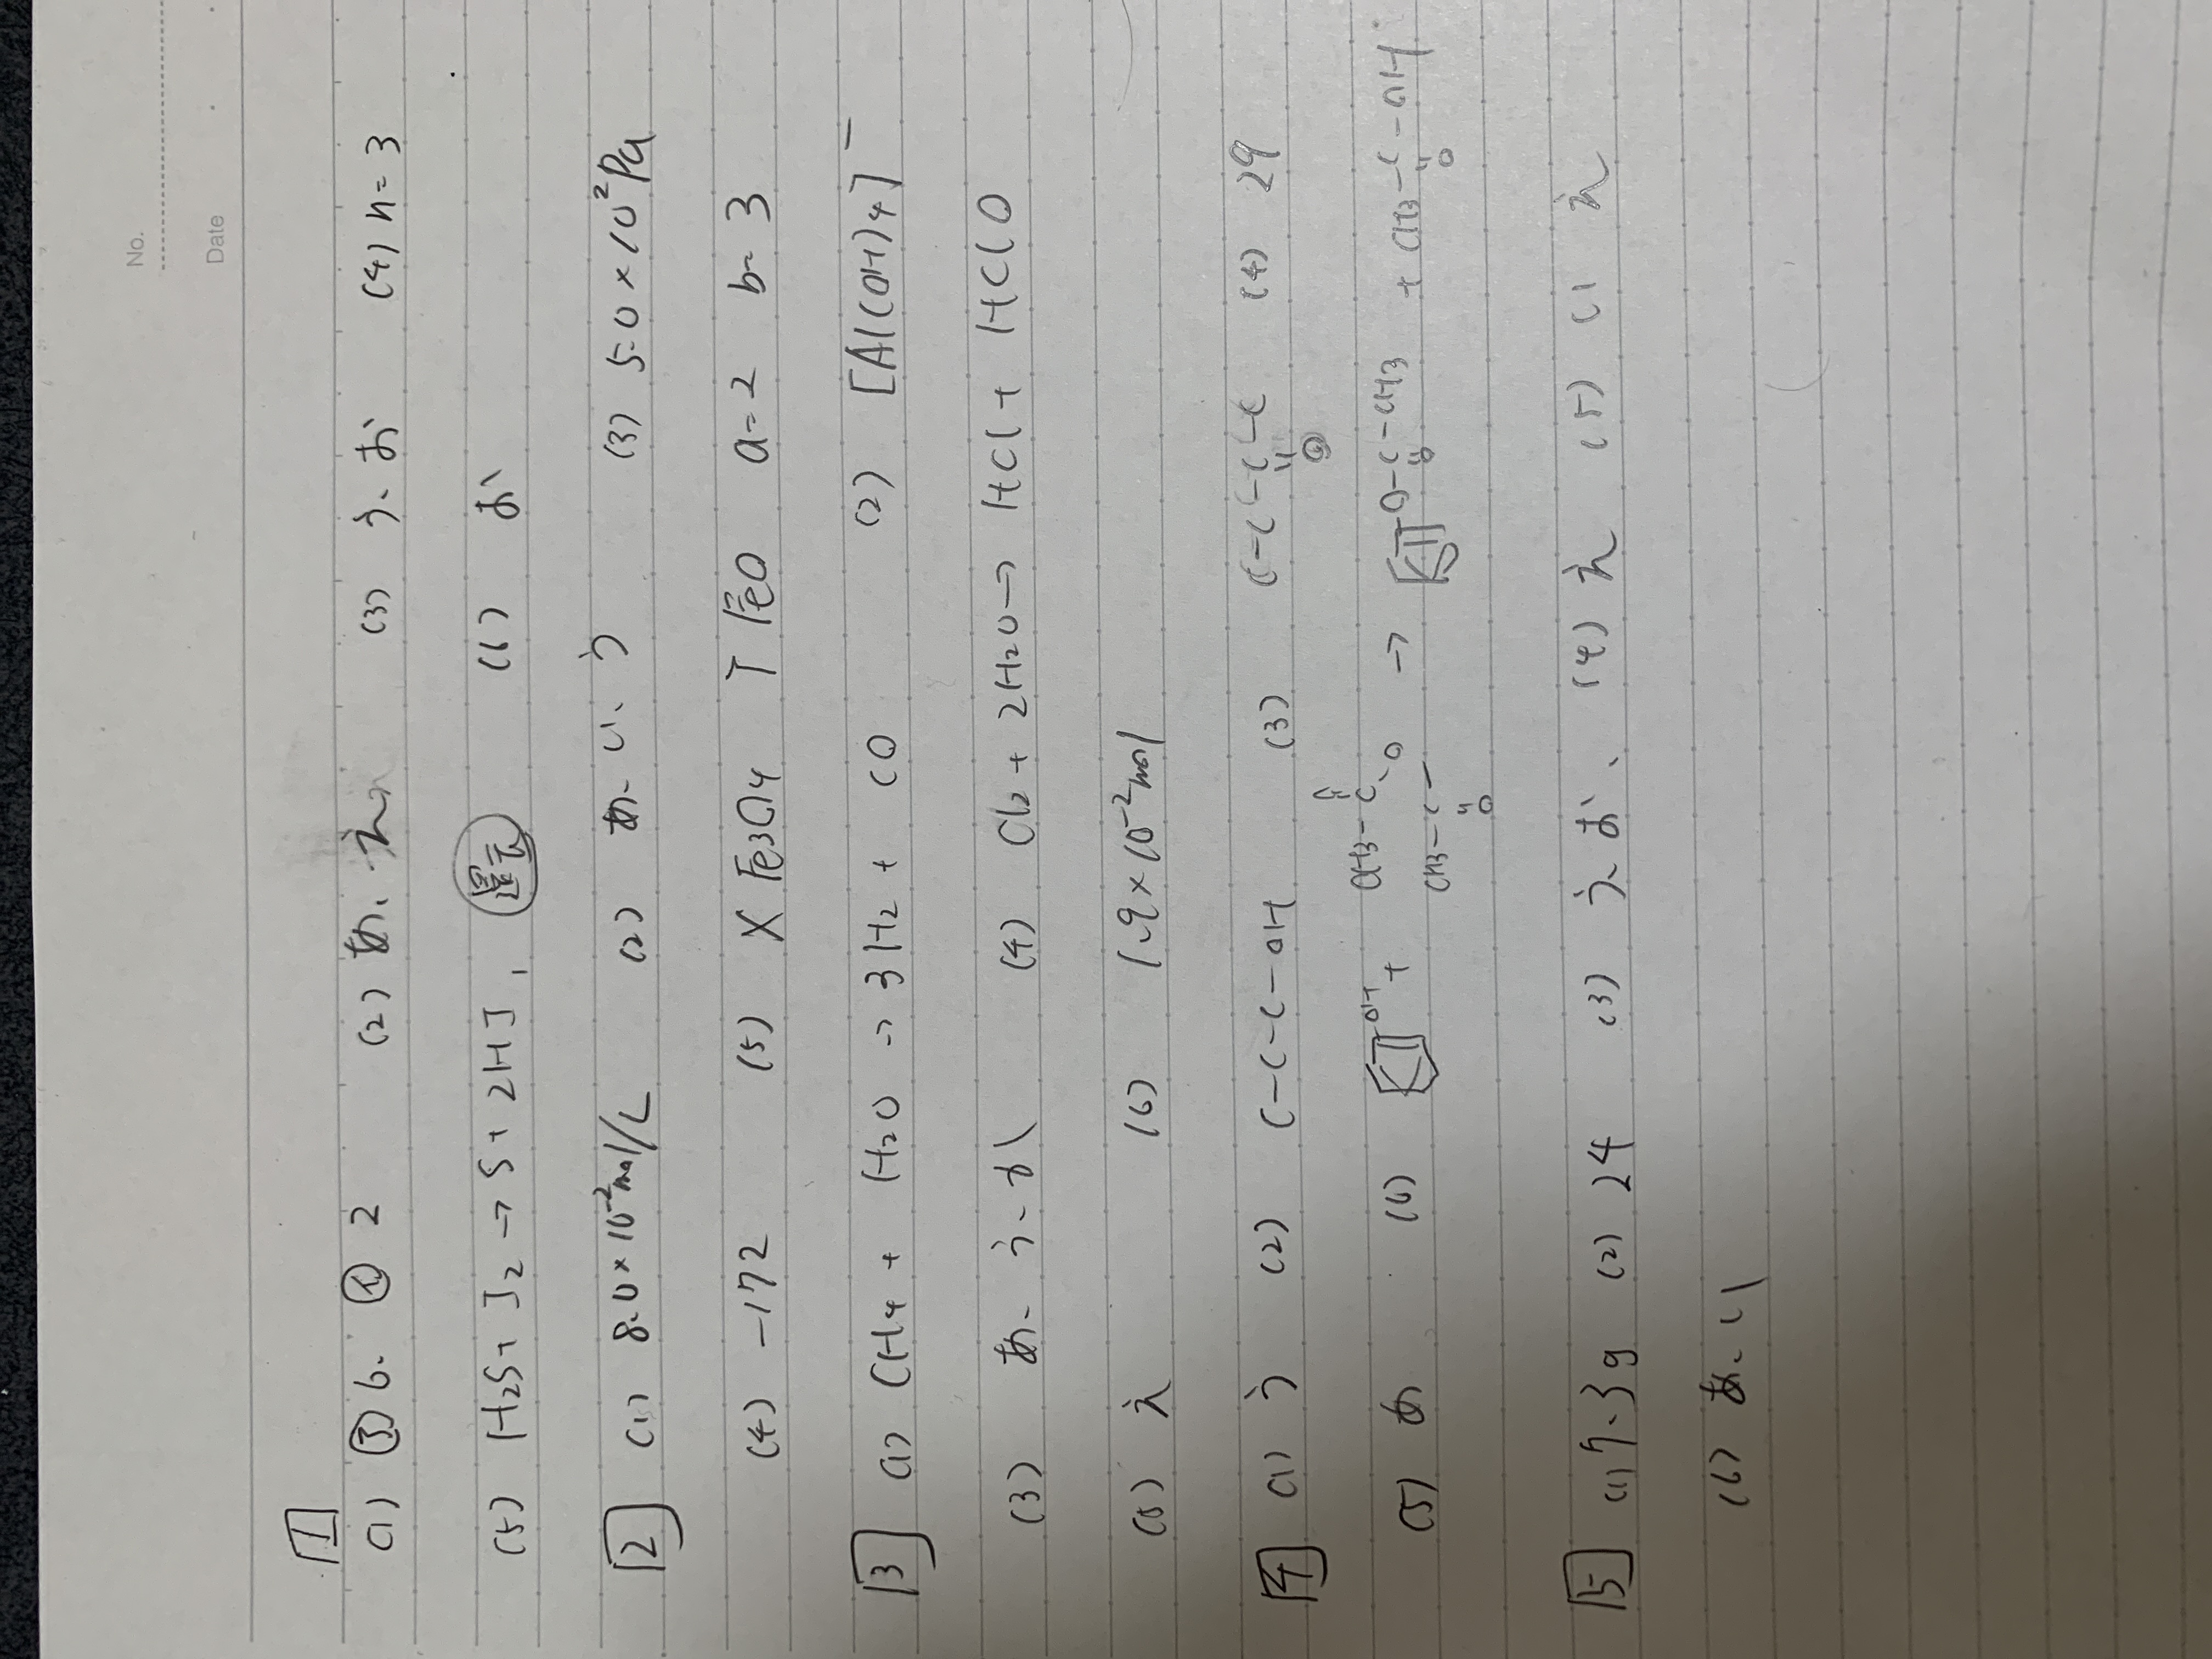 No.
Date
1
(1) ③ 6. ④ 2 (2) あ、え (3) う、お (4) n=3
(5) H2S+ I2 → S+ 2HI, (6) お
2 (1) 8.0×10⁻²mol/L (2) あ、い、う (3) 5.0×10²Pa
(4) -172 (5) X Fe3O4 Y FeO a=2 b=3
3 (1) CH4 + H2O → 3H2 + CO (2) [Al(OH)4]⁻
(3) あ、う、か (4) Cl2 + 2H2O → HCl + HClO
(5) え (6) 1.9×10⁻²mol
4 (1) う (2) C-C-C-OH (3) C-C-C-C (4) 29
O
(5) あ (6) OH + CH3-C-O → O-C-CH3 + CH3-C-OH
CH3-C-
O O O
5 (1) 7.3g (2) 24 (3) う、お、 (4) え (5) い え
(6) あ、い